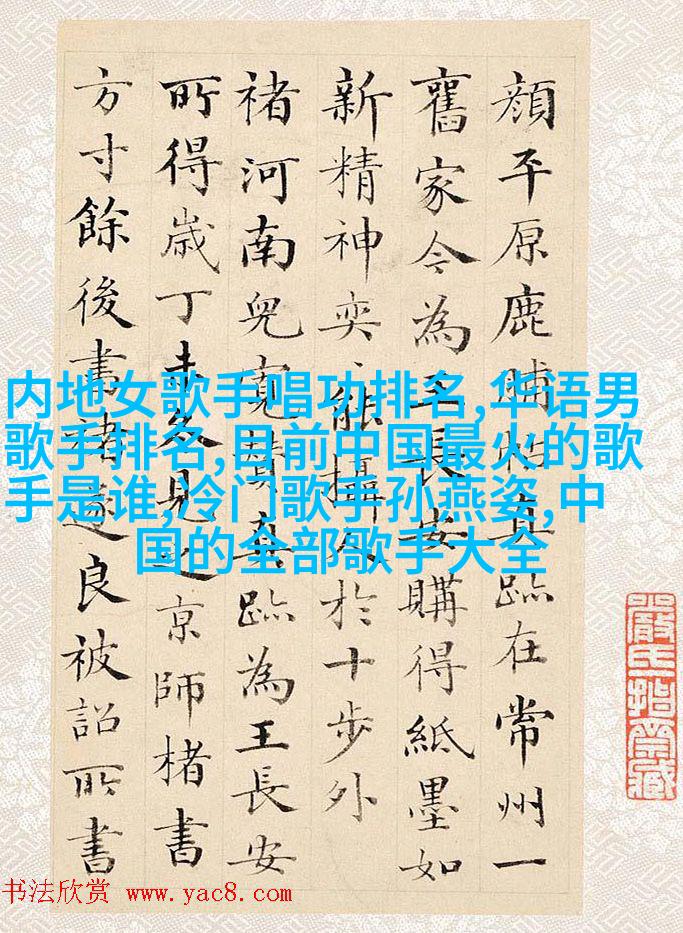 顔平原鹿脯帖真跡在常州一
舊家今為王長安購得紙墨如
新精神奕、能攝人於十步外
褚河南兒寬贊真跡為王長安
所得歲丁未冬見之京師楮書
方寸餘後書褚遂良被詔所書
内地女歌手唱功排名,华语男
歌手排名,目前中国最火的歌
手是谁,冷门歌手孙燕姿,中
国的全部歌手大全
书法欣赏 www.yac8.com